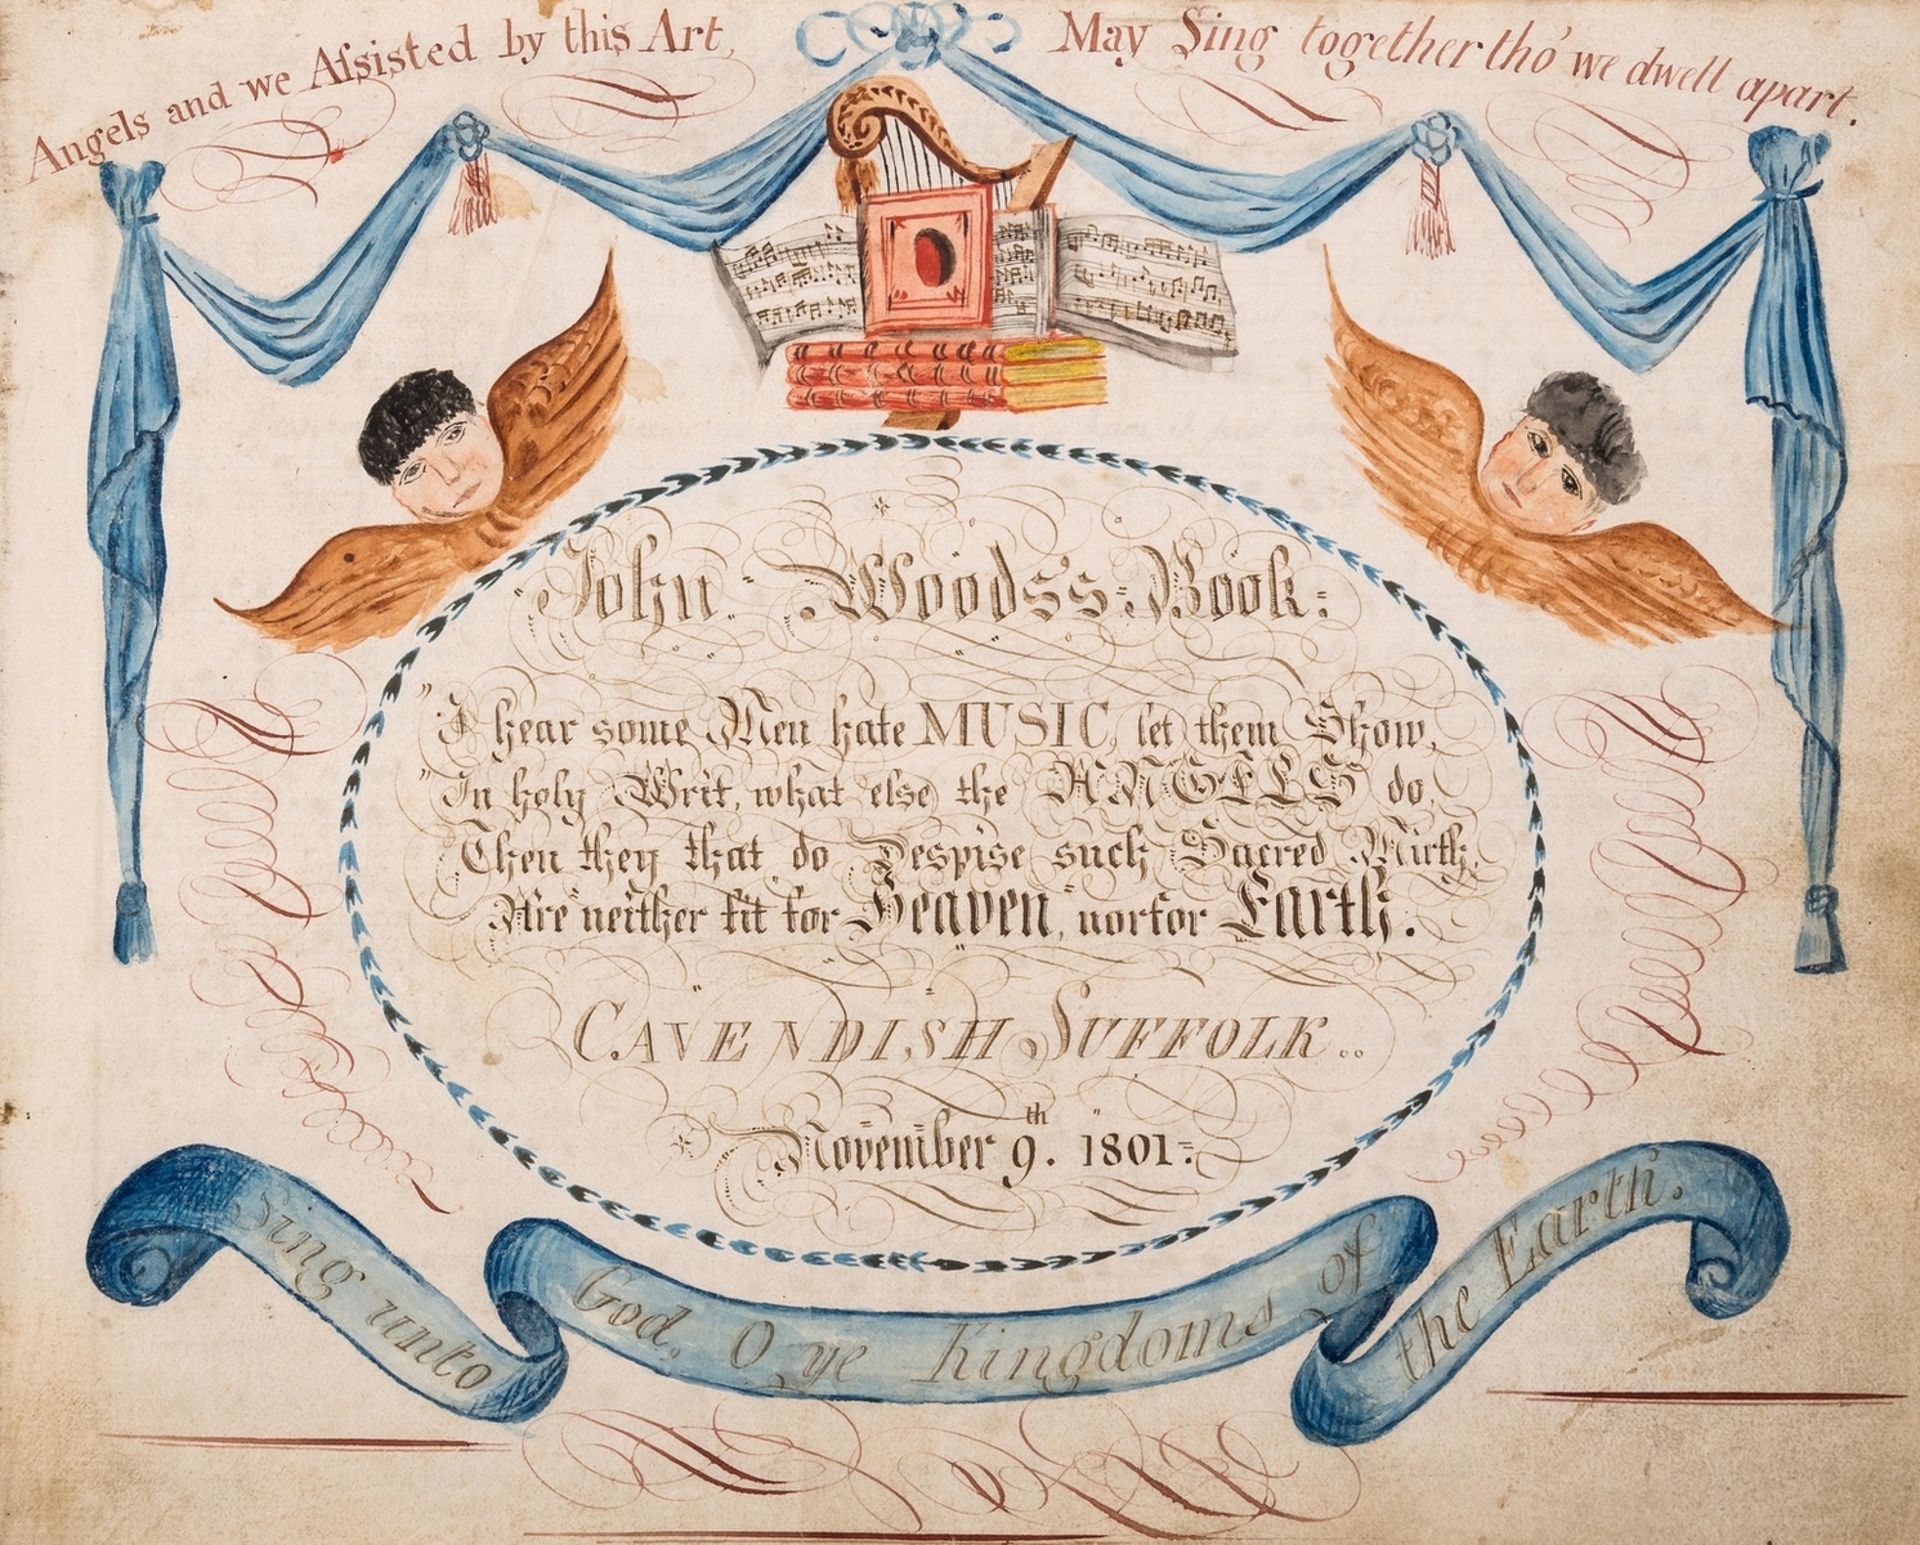 Angels and we Aſsisted by this Art,
May Sing together tho' we dwell apart.
John Woods's Book:
"I hear some Men hate MUSIC, let them Show,
"In holy Writ, what else the ANGELS do,
Then they that do Despise such Sacred Mirth,
Are neither fit for Heaven, nor for Earth.
CAVENDISH SUFFOLK..
November 9th. 1801:
Sing unto God, O ye Kingdoms of the Earth.